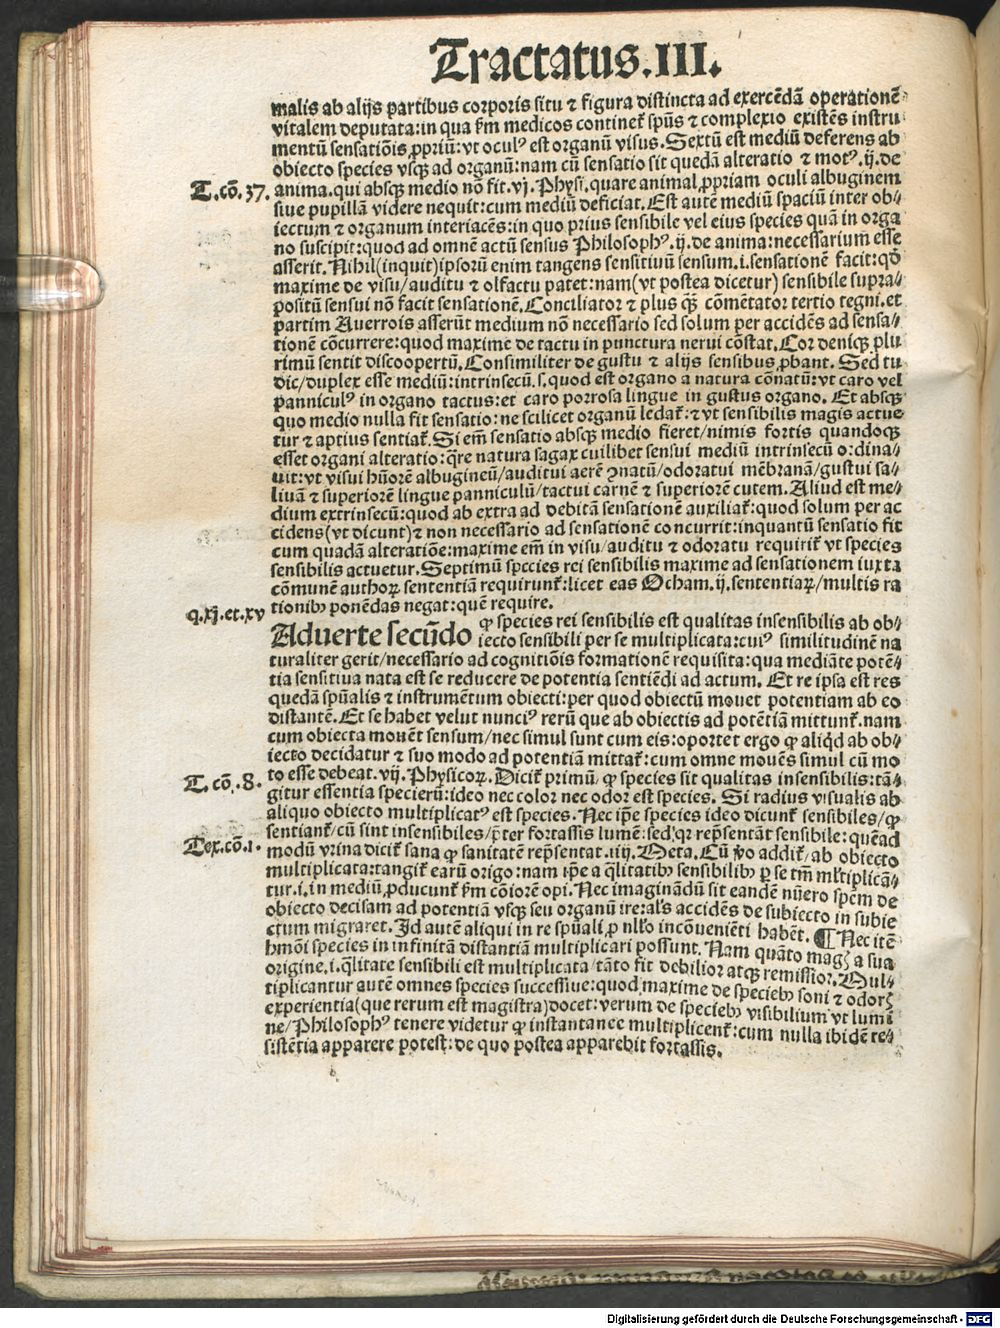 Tractatus.III.
malis ab alijs partibus corporis situ ⁊ figura distincta ad exercēdā operationē
vitalem deputata:in qua ẜm medicos continet᷑ spūs ⁊ complexio existēs instru
mentū sensatiōis ꝓpriū:vt oculꝰ est organū visus.Sextū est mediū deferens ab
obiecto species vsqꝫ ad organū:nam cū sensatio sit quedā alteratio ⁊ motꝰ.ij.de
T.cō.37.
anima.qui absqꝫ medio nō fit.vj.Physi.quare animal ꝓpriam oculi albuginem
siue pupillā videre nequit:cum mediū deficiat.Est autē mediū spaciū inter ob⸗
iectum ⁊ organum interiacēs:in quo prius sensibile vel eius species quā in orga
no suscipit:quod ad omnē actū sensus Philosophꝰ.ij.de anima:necessarium esse
asserit.Nihil(inquit)ipsorū enim tangens sensitiuū sensum.i.sensationē facit:qđ
maxime de visu/auditu ⁊ olfactu patet:nam(vt postea dicetur) sensibile supra⸗
positū sensui nō facit sensationē.Conciliator ⁊ plus qꝫ̄ cōmētator tertio tegni.et
partim Auerrois asserūt medium nō necessario sed solum per accidēs ad sensa⸗
tionē cōcurrere:quod maxime de tactu in punctura nerui cōstat.Cor deniqꝫ plu
rimū sentit discoopertū.Consimiliter de gustu ⁊ alijs sensibus ꝓbant. Sed tu
dic/duplex esse mediū:intrinsecū.s.quod est organo a natura cōnatū:vt caro vel
panniculꝰ in organo tactus:et caro porrosa lingue in gustus organo. Et absqꝫ
quo medio nulla fit sensatio:ne scilicet organū ledat᷑:⁊ vt sensibilis magis actue
tur ⁊ aptius sentiat᷑.Si em̄ sensatio absqꝫ medio fieret/nimis fortis quandoqꝫ
esset organi alteratio:qͣre natura sagax cuilibet sensui mediū intrinsecū ordina⸗
uit:vt visui hūorē albugineū/auditui aerē ꝯnatū/odoratui mēbranā/gustui sa⸗
liuā ⁊ superiorē lingue panniculū/tactui carnē ⁊ superiorē cutem.Aliud est me⸗
dium extrinsecū:quod ab extra ad debitā sensationē auxiliat᷑:quod solum per ac
cidens(vt dicunt)⁊ non necessario ad sensationē concurrit:inquantū sensatio fit
cum quadā alteratiōe:maxime em̄ in visu/auditu ⁊ odoratu requirit᷑ vt species
sensibilis actuetur.Septimū species rei sensibilis maxime ad sensationem iuxta
cōmunē authoꝝ sententiā requirunt᷑:licet eas Ocham.ij.sententiaꝝ/multis ra
q.xij.et.xv
tionibꝰ ponēdas negat:quē require.
Aduerte secūdo ꝙ species rei sensibilis est qualitas insensibilis ab ob⸗
iecto sensibili per se multiplicata:cuiꝰ similitudinē na
turaliter gerit/necessario ad cognitiōis formationē requisita:qua mediāte potē⸗
tia sensitiua nata est se reducere de potentia sentiēdi ad actum. Et re ipsa est res
quedā spūalis ⁊ instrumētum obiecti:per quod obiectū mouet potentiam ab eo
distantē.Et se habet velut nunciꝰ rerū que ab obiectis ad potētiā mittunt᷑.nam
cum obiecta mouēt sensum/nec simul sunt cum eis:oportet ergo ꝙ aliqd ab ob⸗
iecto decidatur ⁊ suo modo ad potentiā mittat᷑:cum omne mouēs simul cū mo
T.cō.8.
to esse debeat.vij.Physicoꝝ.Dicit᷑ primū ꝙ species sit qualitas insensibilis:tā⸗
gitur essentia specierū:ideo nec color nec odor est species. Si radius visualis ab
aliquo obiecto multiplicatꝰ est species.Nec ip̄e species ideo dicunt᷑ sensibiles/ꝙ
Tex.cō.1.
sentiant᷑/cū sint insensibiles/p̄ter fortassis lumē:sed qꝛ rep̄sentāt sensibile:quēad
modū vrina dicit᷑ sana ꝙ sanitatē rep̄sentat.iiij.Meta.Cū v̊o addit᷑/ab obiecto
multiplicata:tangit᷑ earū origo:nam ip̄e a q̄litatibꝰ sensibilibꝰ ꝑ se tm̄ mltiplicā⸗
tur.i.in mediū ꝓducunt᷑ ẜm cōiorē opi.Nec imaginādū sit eandē nūero sp̄em de
obiecto decisam ad potentiā vsqꝫ seu organū ire:als accidēs de subiecto in subie
ctum migraret.Id autē aliqui in re spūali ꝓ nllo incōueniēti habēt. ¶Nec itē
hmōi species in infinitā distantiā multiplicari possunt. Nam quāto magꝭ a sua
origine.i.q̄litate sensibili est multiplicata/tāto fit debilior atqꝫ remissior.Mul⸗
tiplicantur autē omnes species successiue:quod maxime de speciebꝰ soni ⁊ odorꝭ
experientia(que rerum est magistra)docet:verum de speciebꝰ visibilium vt lumi
ne/Philosophꝰ tenere videtur ꝙ instantanee multiplicent᷑:cum nulla ibidē re⸗
sistētia apparere potest:de quo postea apparebit fortassis.
Digitalisierung gefördert durch die Deutsche Forschungsgemeinschaft - DFG